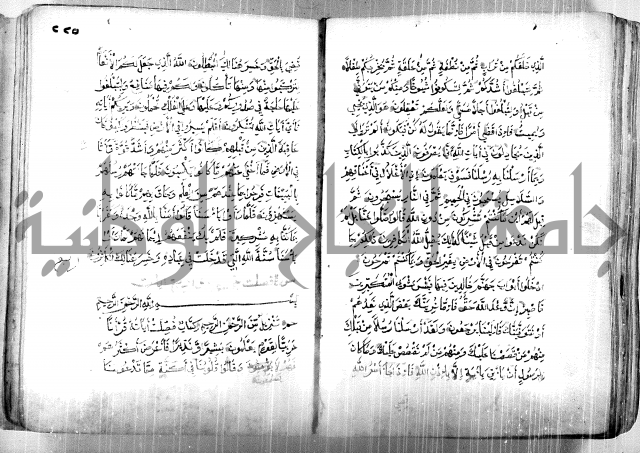 الذي خلقكم من تراب ثم من نطفة ثم من علقة ثم يخرجكم طفلا
ثم لتبلغوا أشدكم ثم لتكونوا شيوخا ومنكم من يتوفى
من قبل ولتبلغوا أجلا مسمى ولعلكم تعقلون هو الذي يحيي
ويميت فاذا قضى أمرا فانما يقول له كن فيكون ألم تر إلى
الذين يجادلون في آيات الله أنى يصرفون الذين كذبوا بالكتاب
وبما أرسلنا به رسلنا فسوف يعلمون إذ الأغلال في أعناقهم
والسلاسل يسحبون في الحميم ثم في النار يسجرون ثم
قيل لهم أين ما كنتم تشركون من دون الله قالوا ضلوا عنا بل لم
نكن ندعوا من قبل شيئا كذلك يضل الله الكافرين ذلكم بما
كنتم تفرحون في الأرض بغير الحق وبما كنتم تمرحون
ادخلوا أبواب جهنم خالدين فيها فبئس مثوى المتكبرين
فاصبر إن وعد الله حق فاما نرينك بعض الذي نعدهم
أو نتوفينك فالينا يرجعون ولقد أرسلنا رسلا من قبلك
منهم من قصصنا عليك ومنهم من لم نقصص عليك وما كان
لرسول أن يأتي بآية إلا باذن الله فاذا جاء أمر الله
٢٢٥
قضي بالحق وخسر هنالك المبطلون الله الذي جعل لكم الأنعام
لتركبوا منها ومنها تأكلون ولكم فيها منافع ولتبلغوا
عليها حاجة في صدوركم وعليها وعلى الفلك تحملون ويريكم آياته
فأي آيات الله تنكرون أفلم يسيروا في الأرض فينظروا كيف كان
عاقبة الذين من قبلهم كانوا أكثر منهم وأشد قوة وآثارا
في الأرض فما أغنى عنهم ما كانوا يكسبون فلما جاءتهم رسلهم
بالبينات فرحوا بما عندهم من العلم وحاق بهم ما كانوا به
يستهزؤن فلما رأوا بأسنا قالوا آمنا بالله وحده وكفرنا
بما كنا به مشركين فلم يك ينفعهم إيمانهم لما رأوا
بأسنا سنة الله التي قد خلت في عباده وخسر هنالك الكافرون
بسم الله الرحمن الرحيم
حم تنزيل من الرحمن الرحيم كتاب فصلت آياته قرآنا
عربيا لقوم يعلمون بشيرا ونذيرا فأعرض أكثرهم
فهم لا يسمعون وقالوا قلوبنا في أكنة مما تدعونا
جامعة النجاح الوطنية